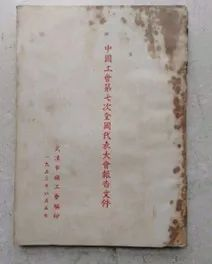 中國工會第七次全國代表大會報告文件
武漢市總工會編印
一九五三年六月